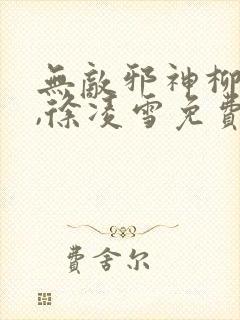 無敵邪神柳
,徐凌雪免費
費舍尔